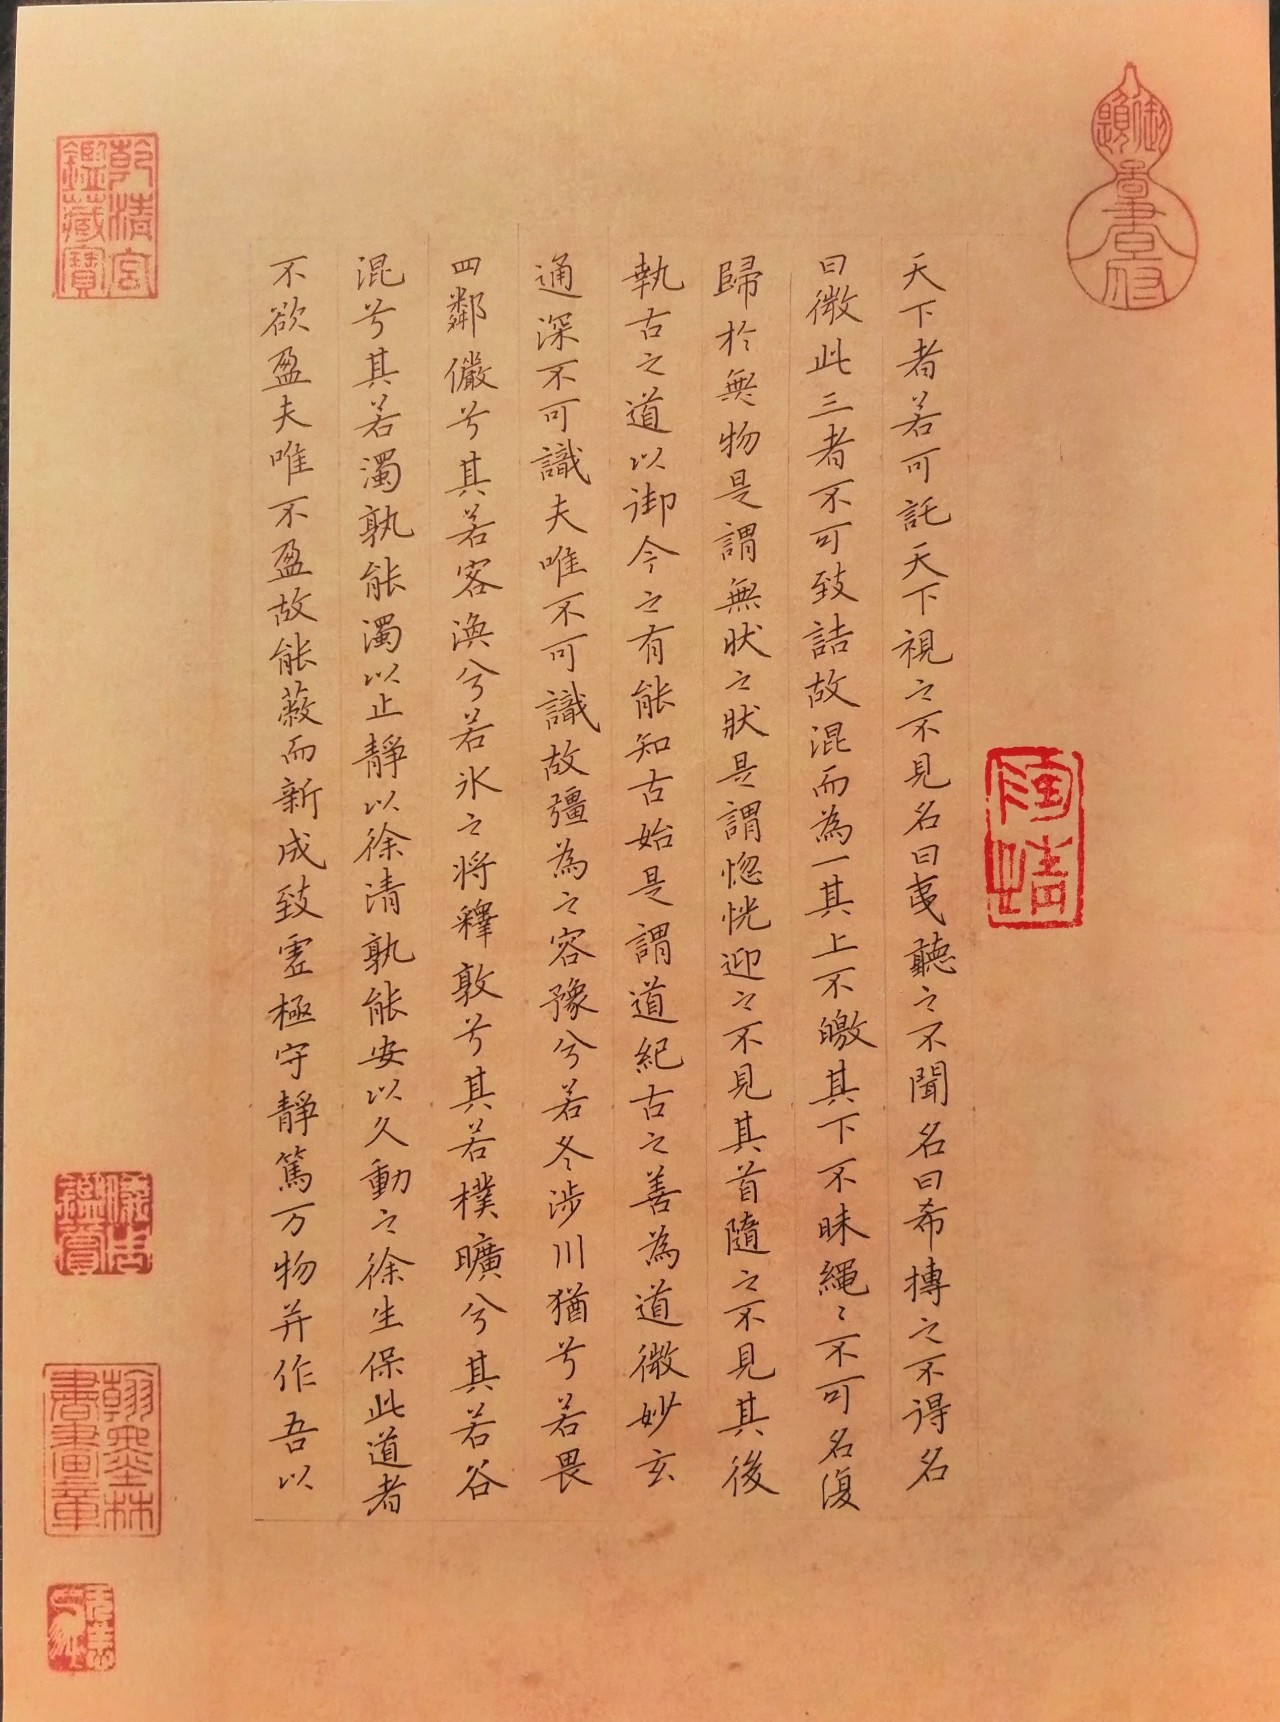 天下者若可託天下視之不見名曰夷聽之不聞名曰希摶之不得名
曰微此三者不可致詰故混而為一其上不皦其下不昧繩〻不可名復
歸於無物是謂無狀之狀是謂惚恍迎之不見其首隨之不見其後
執古之道以御今之有能知古始是謂道紀古之善為道微妙玄
通深不可識夫唯不可識故彊為之容豫兮若冬涉川猶兮若畏
四鄰儼兮其若客渙兮若冰之將釋敦兮其若樸曠兮其若谷
混兮其若濁孰能濁以止靜以徐清孰能安以久動之徐生保此道者
不欲盈夫唯不盈故能蔽而新成致虛極守靜篤万物并作吾以
乾清宮
鑑藏寶
翰墨林
書畫章